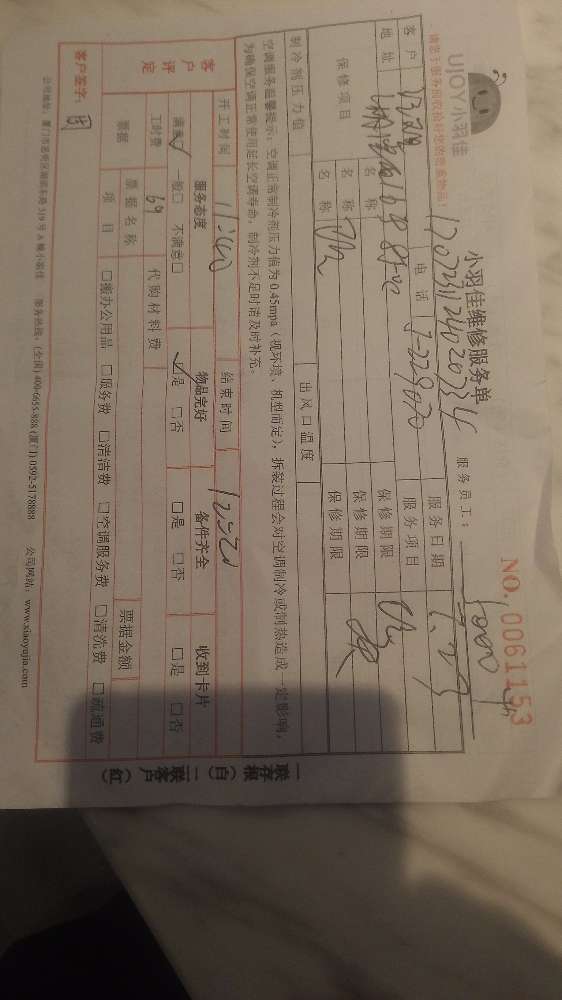 UJOY小羽佳
小羽佳维修服务单
NO. 0061153
·请您于服务前收捡好您的贵重物品！
1707231124020734
服务员工：
客户
电话
服务日期
地址
服务项目
保修项目
名称
保修期限
名称
保修期限
名称
保修期限
制冷剂压力值
出风口温度
空调服务温馨提示：空调正常制冷剂压力值为0.45mpa（视环境、机型而定），拆装过程会对空调制冷或制热造成一定影响，
为确保空调正常使用延长空调寿命，制冷剂不足时请及时补充。
开工时间 11:40 结束时间 12:20
客户评定
服务态度 物品完好 备件齐全 收到卡片
满意 ✓ 一般□ 不满意□ ☑是 □否 □是 □否 □是 □否
工时费 69 代购材料费
票据 票据名称 票据金额
项目 □搬办公用品 □服务费 □清洁费 □空调服务费 □清洗费 □疏通费
客户签字：周
公司地址：厦门市思明区湖滨东路319号A幢小羽佳 服务热线：(全国) 400-6655-888 (厦门) 0592-5178888 公司网站：www.xiaoyujia.com
一联存根（白） 一联客户（红）